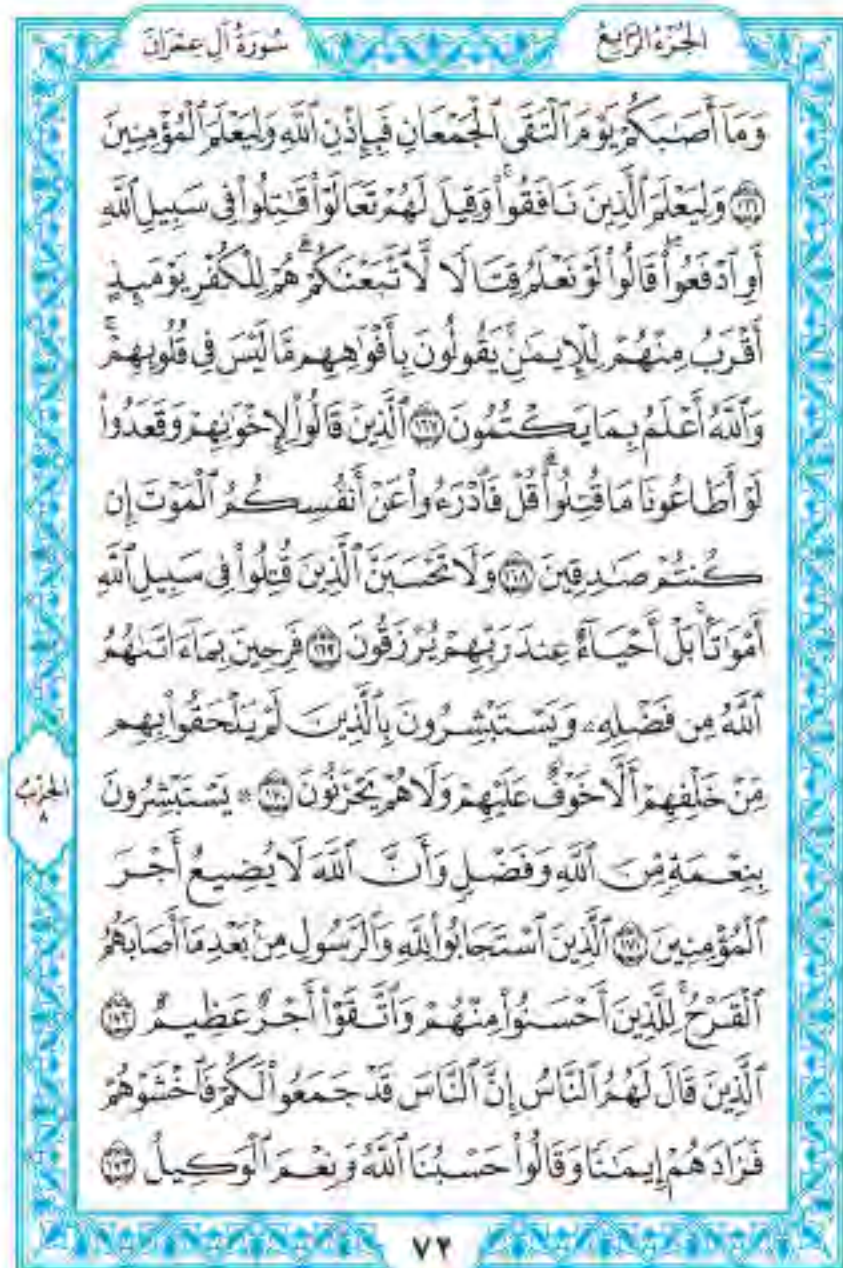 الجُزْءُ الرَّابِعُ
سُورَةُ آلِ عِمْرَانَ
وَمَآ أَصَٰبَكُمْ يَوْمَ ٱلْتَقَى ٱلْجَمْعَانِ فَبِإِذْنِ ٱللَّهِ وَلِيَعْلَمَ ٱلْمُؤْمِنِينَ
١٦٦ وَلِيَعْلَمَ ٱلَّذِينَ نَافَقُوا۟ۚ وَقِيلَ لَهُمْ تَعَالَوْا۟ قَٰتِلُوا۟ فِى سَبِيلِ ٱللَّهِ
أَوِ ٱدْفَعُوا۟ۖ قَالُوا۟ لَوْ نَعْلَمُ قِتَالًا لَّٱتَّبَعْنَٰكُمْۗ هُمْ لِلْكُفْرِ يَوْمَئِذٍ
أَقْرَبُ مِنْهُمْ لِلْإِيمَٰنِۚ يَقُولُونَ بِأَفْوَٰهِهِم مَّا لَيْسَ فِى قُلُوبِهِمْۗ
وَٱللَّهُ أَعْلَمُ بِمَا يَكْتُمُونَ ١٦٧ ٱلَّذِينَ قَالُوا۟ لِإِخْوَٰنِهِمْ وَقَعَدُوا۟
لَوْ أَطَاعُونَا مَا قُتِلُوا۟ۗ قُلْ فَٱدْرَءُوا۟ عَنْ أَنفُسِكُمُ ٱلْمَوْتَ إِن
كُنتُمْ صَٰدِقِينَ ١٦٨ وَلَا تَحْسَبَنَّ ٱلَّذِينَ قُتِلُوا۟ فِى سَبِيلِ ٱللَّهِ
أَمْوَٰتًۢاۚ بَلْ أَحْيَآءٌ عِندَ رَبِّهِمْ يُرْزَقُونَ ١٦٩ فَرِحِينَ بِمَآ ءَاتَىٰهُمُ
ٱللَّهُ مِن فَضْلِهِۦ وَيَسْتَبْشِرُونَ بِٱلَّذِينَ لَمْ يَلْحَقُوا۟ بِهِم
مِّنْ خَلْفِهِمْ أَلَّا خَوْفٌ عَلَيْهِمْ وَلَا هُمْ يَحْزَنُونَ ١٧٠ ۞ يَسْتَبْشِرُونَ
بِنِعْمَةٍ مِّنَ ٱللَّهِ وَفَضْلٍ وَأَنَّ ٱللَّهَ لَا يُضِيعُ أَجْرَ
ٱلْمُؤْمِنِينَ ١٧١ ٱلَّذِينَ ٱسْتَجَابُوا۟ لِلَّهِ وَٱلرَّسُولِ مِنۢ بَعْدِ مَآ أَصَابَهُمُ
ٱلْقَرْحُۚ لِلَّذِينَ أَحْسَنُوا۟ مِنْهُمْ وَٱتَّقَوْا۟ أَجْرٌ عَظِيمٌ ١٧٢
ٱلَّذِينَ قَالَ لَهُمُ ٱلنَّاسُ إِنَّ ٱلنَّاسَ قَدْ جَمَعُوا۟ لَكُمْ فَٱخْشَوْهُمْ
فَزَادَهُمْ إِيمَٰنًا وَقَالُوا۟ حَسْبُنَا ٱللَّهُ وَنِعْمَ ٱلْوَكِيلُ ١٧٣
الحِزْبُ
٨
٧٢